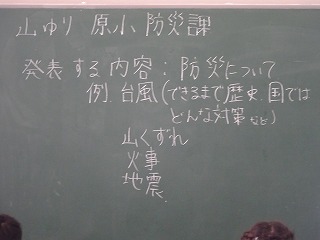 山ゆり 原小 防災課
発表する内容:防災について
例.台風(できるまで歴史.国では
どんな対策など)
山くずれ
火事
地震.